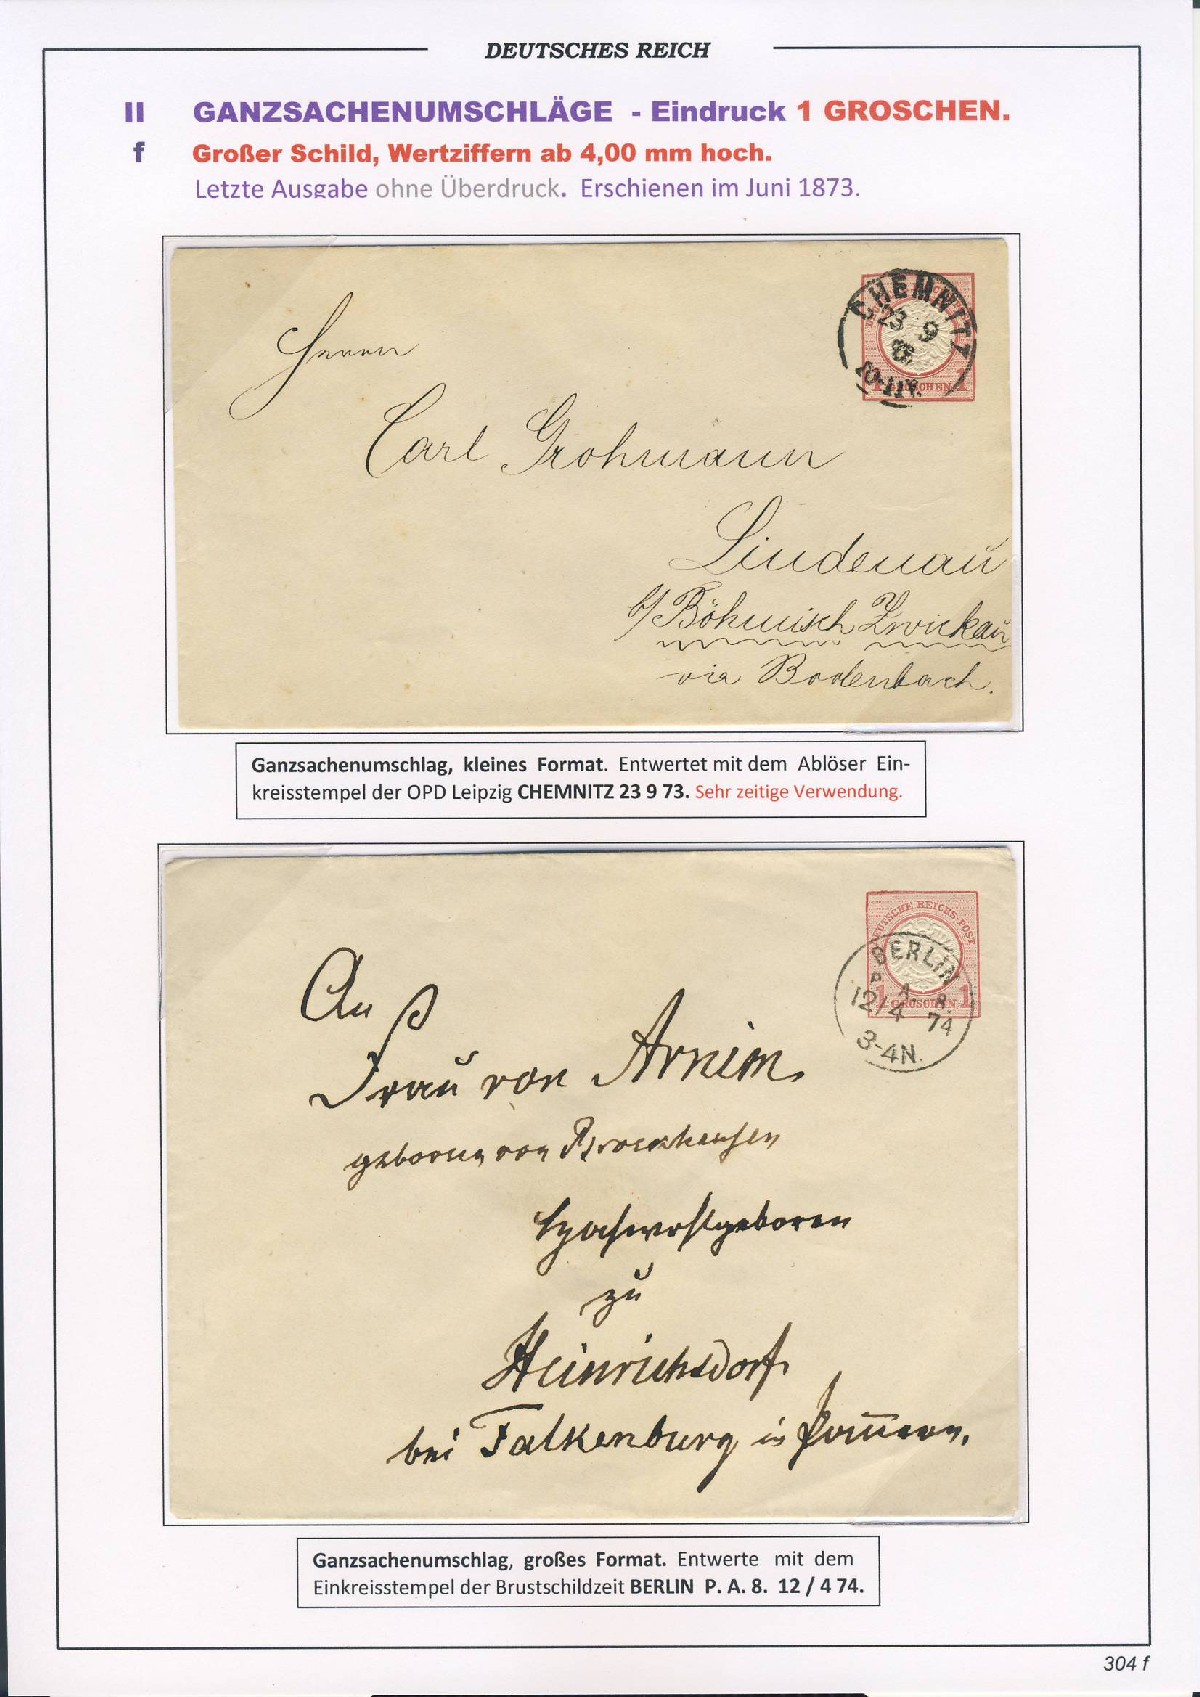 DEUTSCHES REICH
II GANZSACHENUMSCHLÄGE - Eindruck 1 GROSCHEN.
f Großer Schild, Wertziffern ab 4,00 mm hoch.
Letzte Ausgabe ohne Überdruck. Erschienen im Juni 1873.
CHEMNITZ
23 9
10-11V.
GROSCHEN 1
Herrn
Carl Grohmann
Lindenau
b/ Böhmisch Zwickau
via Bodenbach.
Ganzsachenumschlag, kleines Format. Entwertet mit dem Ablöser Ein-
kreisstempel der OPD Leipzig CHEMNITZ 23 9 73. Sehr zeitige Verwendung.
DEUTSCHE REICHS-POST
1 GROSCHEN 1
BERLIN
P. A. 8.
12/4 74
3-4N.
An
Frau von Arnim
geboren von
Hochwohlgeboren
zu
Heinrichsdorf
bei Falkenburg in Pommern.
Ganzsachenumschlag, großes Format. Entwerte mit dem
Einkreisstempel der Brustschildzeit BERLIN P. A. 8. 12 / 4 74.
304 f